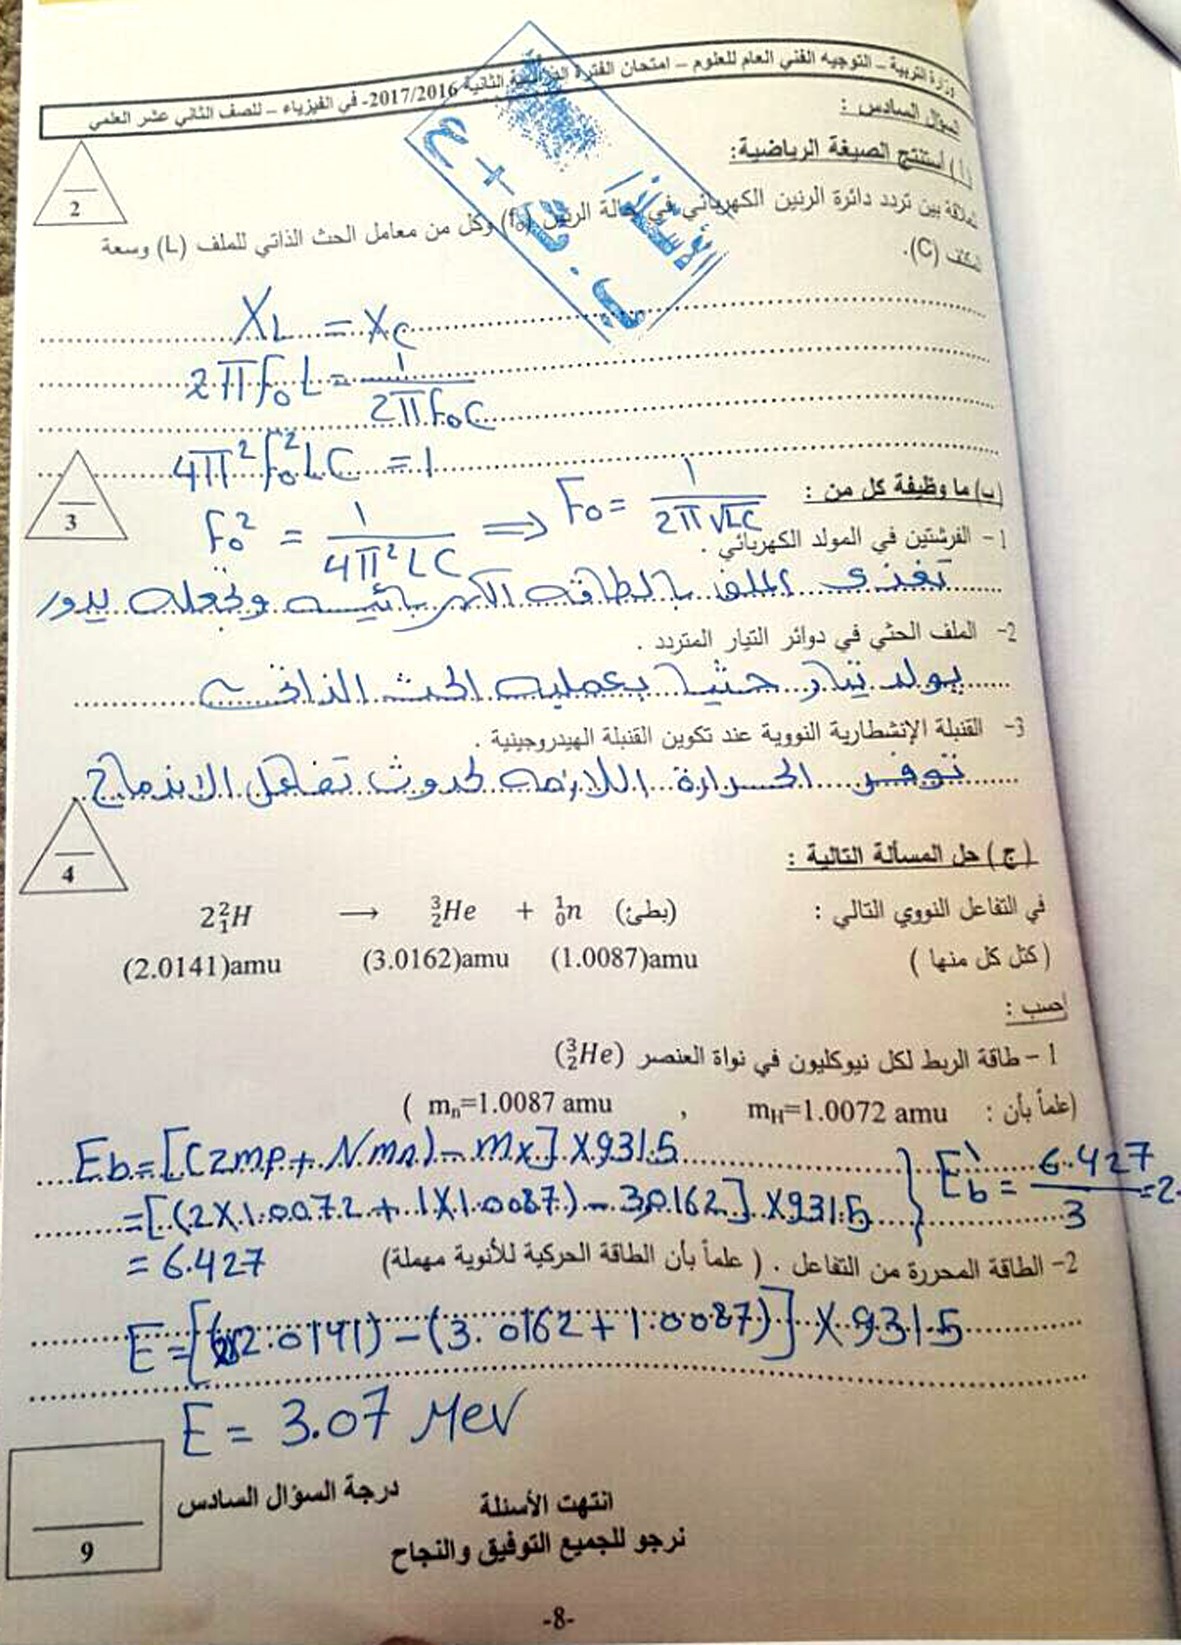 وزارة التربية – التوجيه الفني العام للعلوم – امتحان الفترة الدراسية الثانية 2017/2016- في الفيزياء – للصف الثاني عشر العلمي
السؤال السادس :
(أ) استنتج الصيغة الرياضية:
2
للعلاقة بين تردد دائرة الرنين الكهربائي في حالة الرنين (f₀) وكل من معامل الحث الذاتي للملف (L) وسعة
المكثف (C).
XL = Xc
2πf₀L = 1 / 2πf₀C
4π²f₀²LC = 1
f₀² = 1 / 4π²LC ⇒ F₀ = 1 / 2π√LC
(ب) ما وظيفة كل من :
3
1- الفرشتين في المولد الكهربائي .
تغذى الملف بالطاقه الكهربائيه وتجعله يدور
2- الملف الحثي في دوائر التيار المتردد .
يولد تيار حثيا بعمليه الحث الذاتي
3- القنبلة الإنشطارية النووية عند تكوين القنبلة الهيدروجينية .
توفر الحرارة اللازمه لحدوث تفاعل الاندماج
4
(ج) حل المسألة التالية :
في التفاعل النووي التالي : 2²₁H ⟶ ³₂He + ¹₀n (بطئ)
(كتل كل منها ) (2.0141)amu (3.0162)amu (1.0087)amu
احسب :
1 – طاقة الربط لكل نيوكليون في نواة العنصر (³₂He)
(علماً بأن : mH=1.0072 amu , mn=1.0087 amu )
Eb = [(Zmp + Nmn) - mx] × 931.5
= [(2×1.0072 + 1×1.0087) - 3.0162] × 931.5
= 6.427
E'b = 6.427 / 3 = 2.
2- الطاقة المحررة من التفاعل . ( علماً بأن الطاقة الحركية للأنوية مهملة)
E = [( 2.0141) - (3.0162 + 1.0087)] × 931.5
E = 3.07 MeV
درجة السؤال السادس
9
انتهت الأسئلة
نرجو للجميع التوفيق والنجاح
-8-